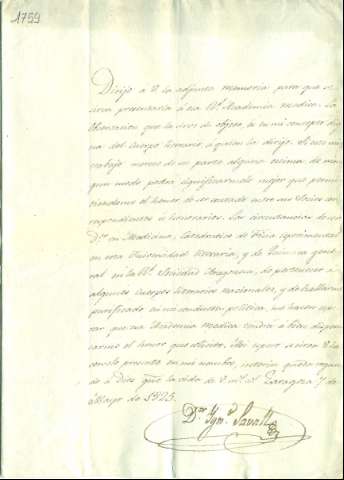 1759
Dirijo á V. la adjunta memoria para que se
sirva presentarla á esa Rl. Academia medica. La
observacion que la sirve de objeto, es en mi concepto dig-
na del cuerpo literario, á quien la dirijo. Si ese mi
trabajo merece de su parte alguna estima de nin-
gun modo podrá significarmela mejor que permi-
tiendome el honor de ser contado entre sus Socios cor-
respondientes ú honorarios. Las circunstancias de ser
Dr. en Medicina, Catedratico de Fisica esperimental
en esta Universidad literaria, y de gene-
ral en la Rl. Sociedad Aragonesa, de pertenecer á
algunos cuerpos literarios nacionales, y de hallarme
purificado en mi conducta politica, me hacen espe-
rar que esa Academia medica tendrá á bien dispen-
sarme el honor que solicito. Asi espero se sirva V. ha-
cerselo presente en mi nombre, interin quedo rogan-
do á Dios gue. la vida de V. ms. as. Zaragoza 7 de
Mayo de 1825.
Dor. Ygno. Savall